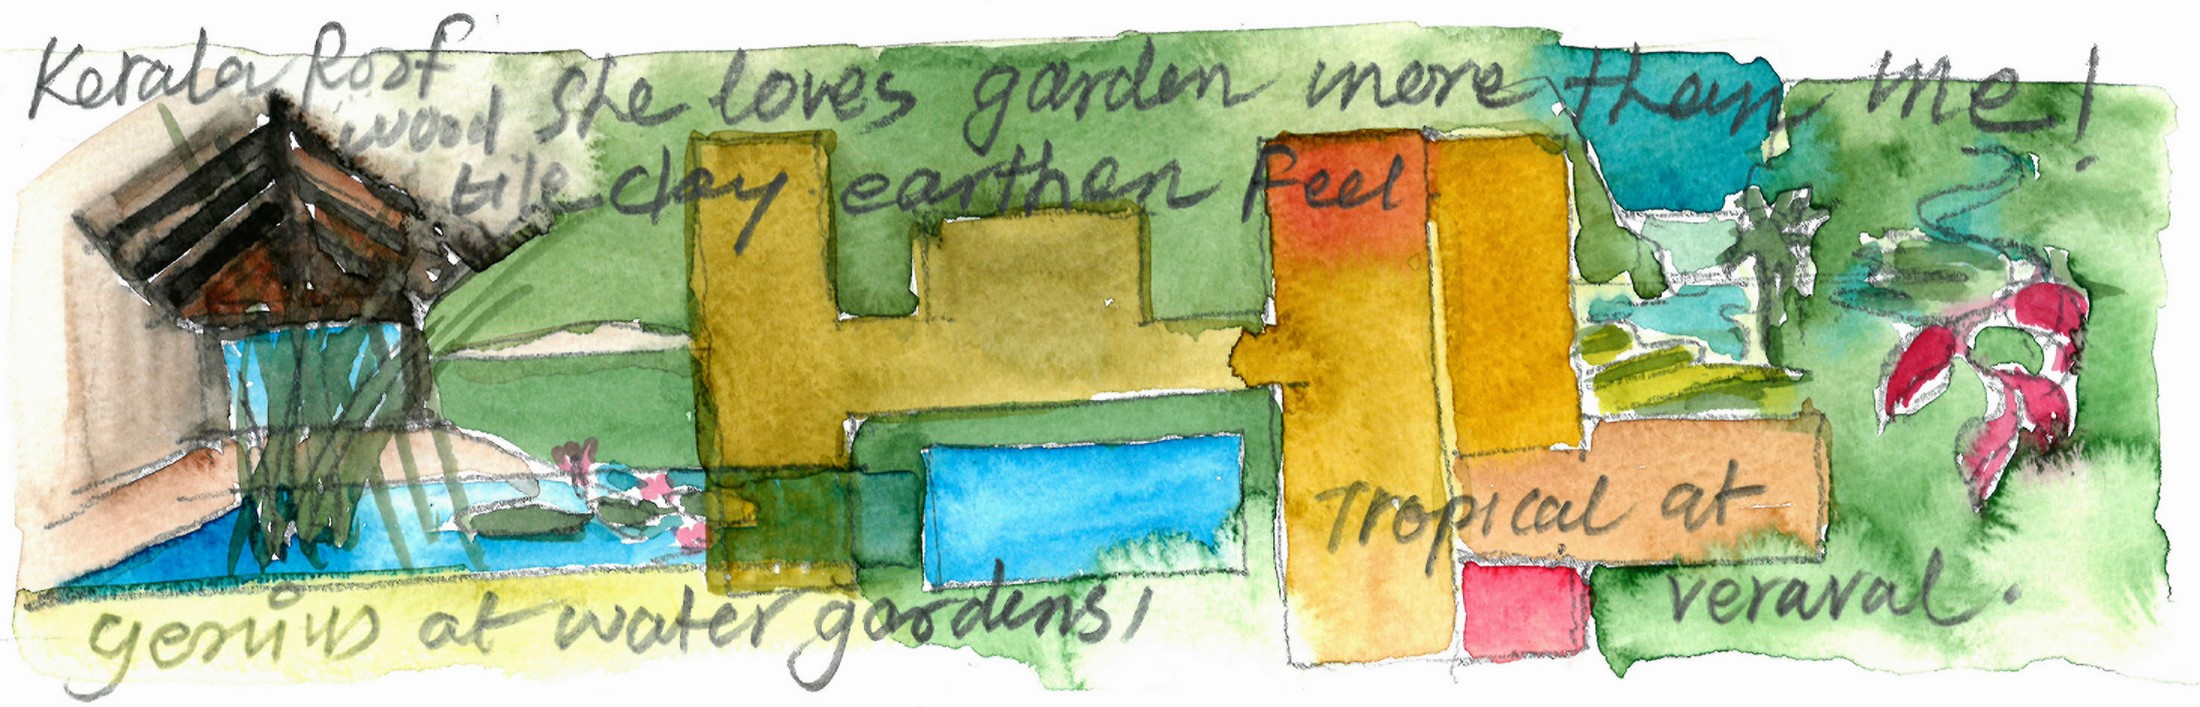 Kerala Roof
wood She loves garden more than me!
tile clay earthen feel
Tropical at
veraval.
genius at water gardens,